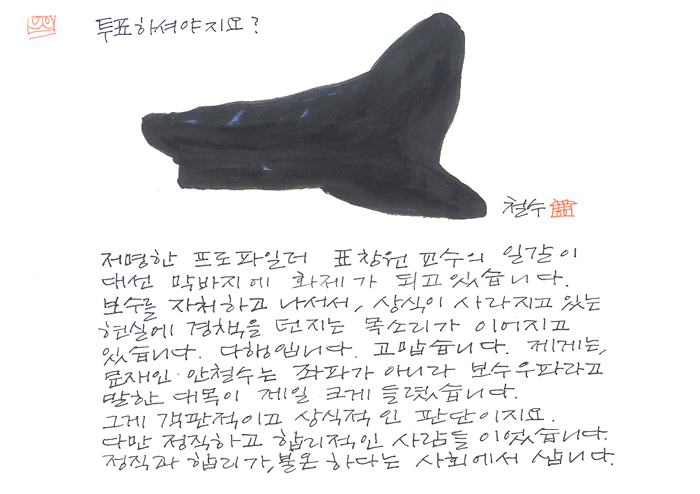 투표하셔야지요?
철수
저명한 프로파일러 표창원 교수의 일갈이
대선 막바지에 화제가 되고 있습니다.
보수를 자처하고 나서서, 상식이 사라지고 있는
현실에 경책을 던지는 목소리가 이어지고
있습니다. 다행입니다. 고맙습니다. 제게는,
문재인·안철수는 좌파가 아니라 보수우파라고
말한 대목이 제일 크게 들렸습니다.
그게 객관적이고 상식적인 판단이지요.
다만 정직하고 합리적인 사람들이었습니다.
정직과 합리가, 불온하다는 사회에서 삽니다.